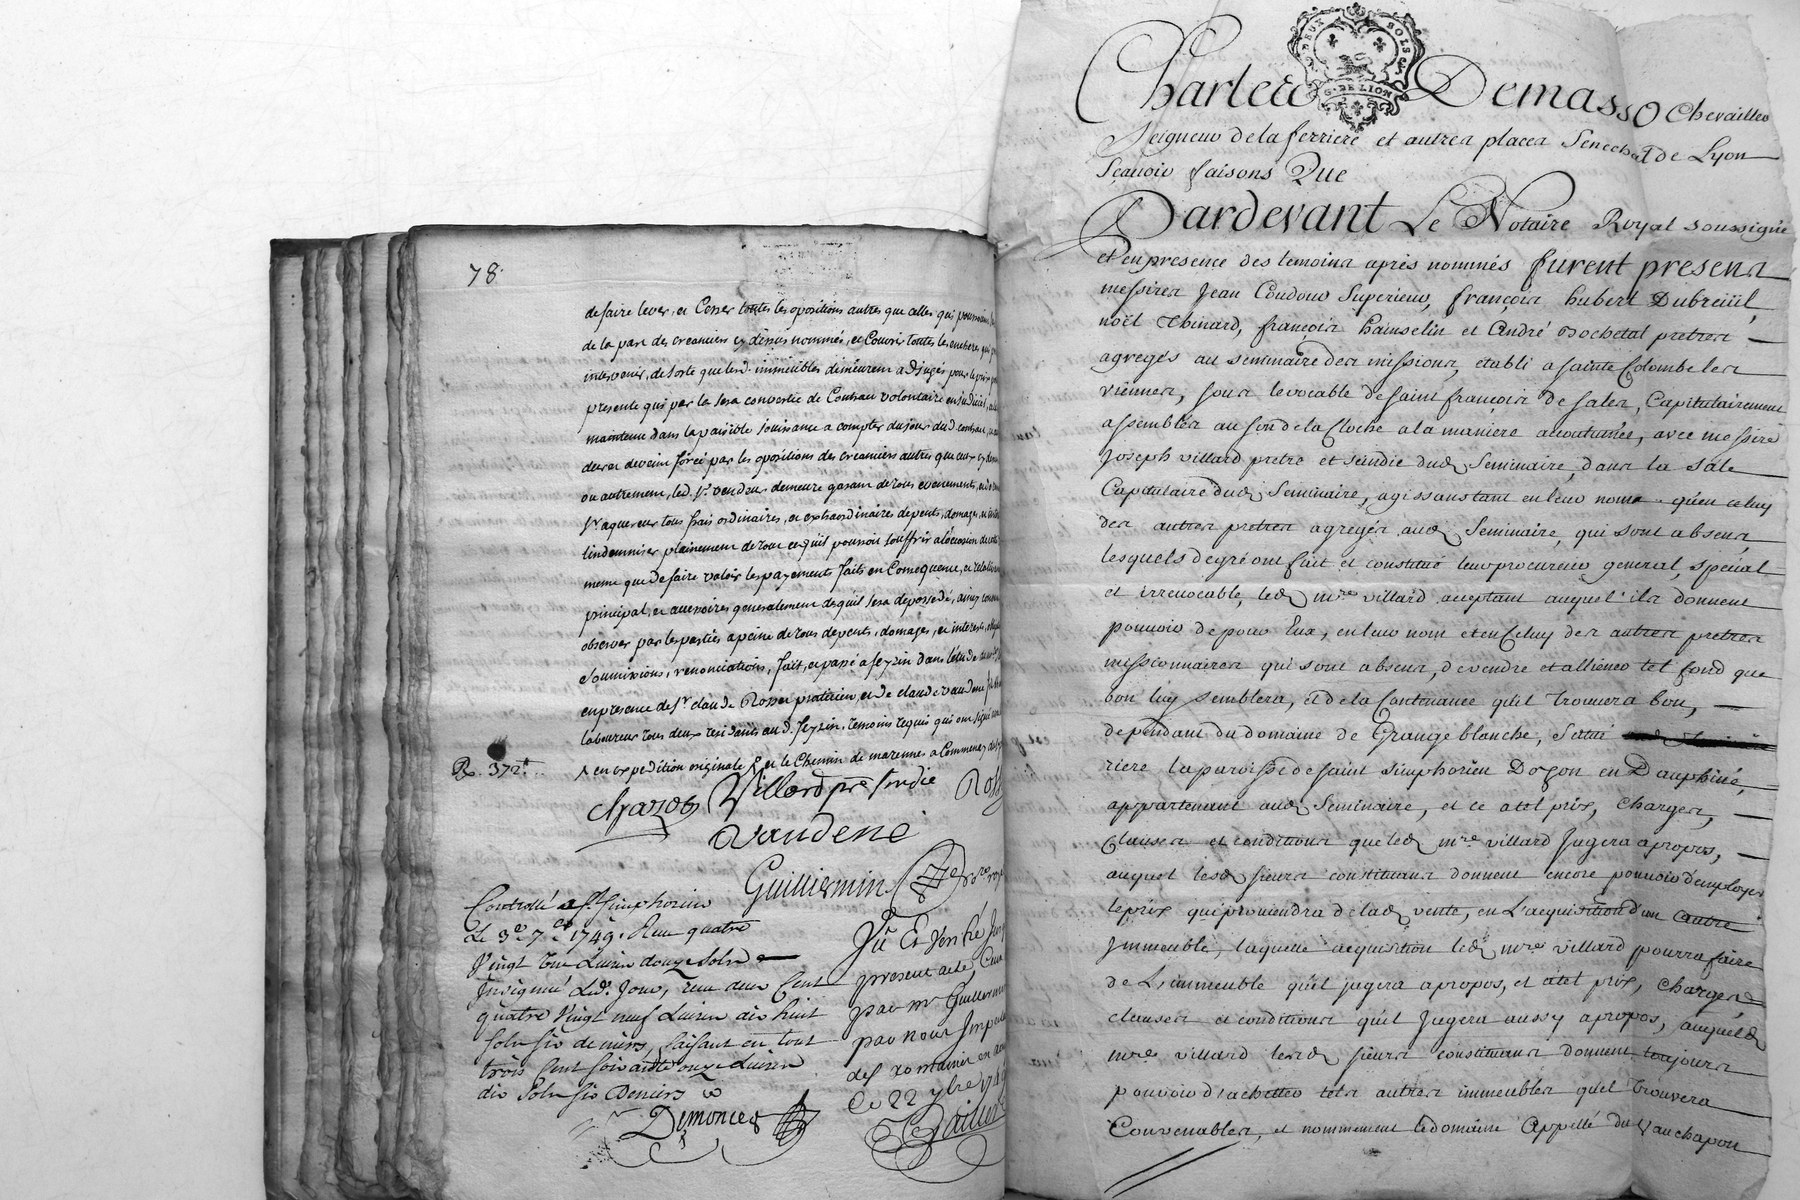 78.
de faire lever, et Cesser toutes les opositions autres que celles qui pourroient
de la part des creanciers cy dessus nommés, et Couvrir toutes les encheres qui
intervenir, de sorte que lesd. immeubles demeurent adjugés pour le prix
presente qui par la sera convertie de Contrau volontaire en judiciel,
maintenu dans la paisible jouissance a compter du jour dud. contrau,
devoir forcé par les opositions des creanciers autres que
ou autrement, led. sr. vendeur demeure garant de tous evenements,
sr. aquereur tous frais ordinaires, et extraordinaires depents, domages,
l'indemniser plainement de tout ce qu'il pourroit souffrir a l'occasion
meme que de faire valoir les payements faits en Consequence,
principal, et accessoires generalement de quil sera depossedé, ainsy
observer par les parties a peine de tous depents, domages, et interets,
soumissions, renonciations, fait, et passé a feyzin dans l'étude
en presence de sr. claude Rosset praticien, et de claude vaudene
laboureur tous deux residants aud. feyzin, temoins requis qui ont signé
en expedition originale & et le Chemin de marenne a Communay
R. 372#
Chazod Villard ptre sindic
Vaudene
Guilliermin
Controllé a St. Simphorien
Le 3e 7bre 1749. Recu quatre
Vingt une Livres douze sols
Insignué Led. Jour, recu deux Cent
quatre Vingt neuf Livres dix huit
sols six deniers, faisant en tout
trois Cent soixante onze Livres
dix Sols six Deniers
Demonces
Vu Et Verifié
present acte
par mr Guilliermin
par nous
des domaines
Ce 22 xbre 174
DEUX SOLS
G. DE LION
Charles Demasso Chevailler
Seigneur de la ferriere et autres places Senechal de Lyon
Sçavoir faisons Que
Pardevant Le Notaire Royal soussigné
et en presence des temoins après nommés furent presens
messires Jean Coudour Superieur, françois hubert Dubreüil,
noël Thinard, françois hamselin et André Bochetal pretres
agregés au seminaire des missions, etabli a sainte Colombe les
viennes, sous le vocable de saint françois de sales, Capitulairement
assemblés au son de la Cloche a la maniere acoutumée, avec messire
Joseph villard pretre et sindic dud. Seminaire, dans la sale
Capitulaire dud. Seminaire, agissans tant en leur nom qu'en celuy
des autres pretres agregés aud. Seminaire, qui sont absens,
lesquels de gré ont fait et constitué leur procureur general, special
et irrevocable, led. mre villard acceptant auquel ils donnent
pouvoir de pour Eux, en leur nom et en Celuy des autres pretres
missionnaires qui sont absens, de vendre et alliener tel fond que
bon luy semblera, et de la Contenance qu'il trouvera bon,
dependant du domaine de Grange blanche, Scitué
riere la paroisse de saint simphorien Dozon en Dauphiné,
appartenant aud. Seminaire, et ce a tel prix, Charges,
Clauses et conditions que led. mre villard Jugera a propos,
auquel lesd. sieurs constituans donnent encore pouvoir d'employer
le prix qui proviendra de lad. vente, en L'acquisition d'un autre
Immeuble, laquelle acquisition led. mre villard pourra faire
de L'immeuble qu'il jugera a propos, et a tel prix, Charges
clauses et conditions qu'il Jugera aussy a propos, auquel d.
mre villard lesd. sieurs constituans donnent toujours
pouvoir d'achetter tels autres immeubles quil trouvera
Convenables, et nommement le domaine Appellé du Vauchapon